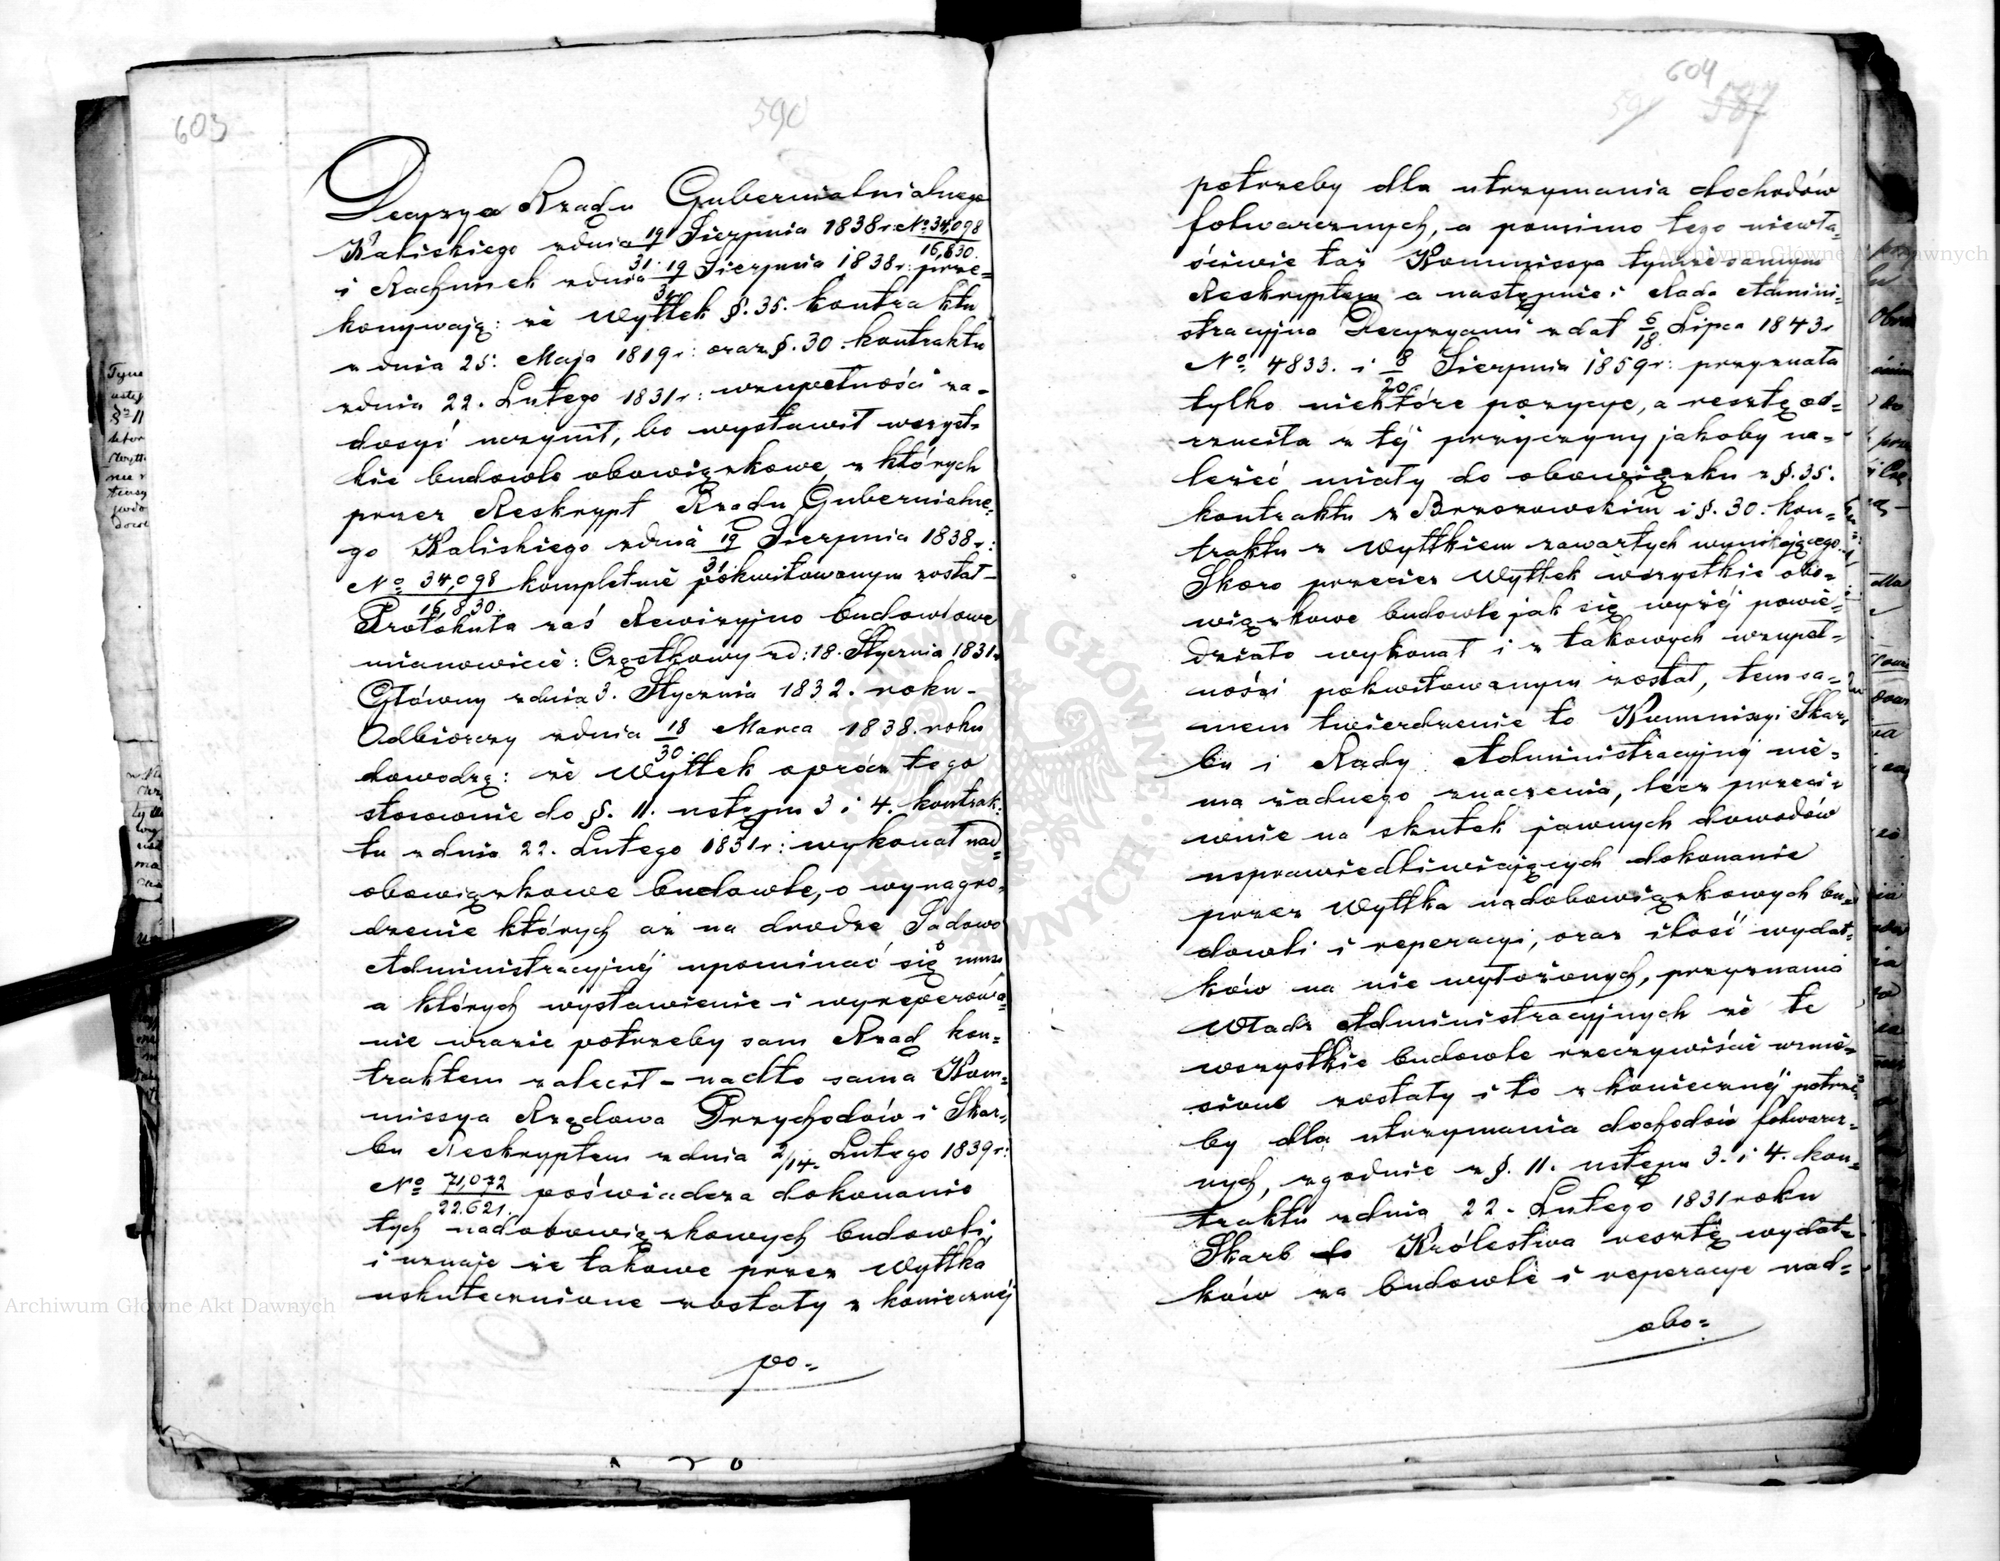 603
590
Decyzya Rządu Gubernialnialnego
Kaliskiego z dnia 19/31 Sierpnia 1838 r: No 34,098/16,830.
i Rachunek z dnia 19/31 Sierpnia 1838 r: prze-
konywają: że Wyttek §. 35. kontraktu
z dnia 25. Maja 1819 r: oraz §. 30. kontraktu
z dnia 22. Lutego 1831 r: w zupełności za-
dosyć uczynił, bo wystawił wszyst-
kie budowle obowiązkowe, z których
przez Reskrypt Rządu Gubernialne-
go Kaliskiego z dnia 19/31 Sierpnia 1838 r:
No 34,098/16,830. kompletnie pokwitowanym został -
Protokuła zaś Rewizyjno budowlowe
mianowicie: Cząstkowy zd: 18. Stycznia 1831 r
Główny z dnia 3. Stycznia 1832. roku -
Odbiorczy z dnia 18/30 Marca 1838. roku
dowodzą: że Wyttek oprócz tego
stosownie do §. 11. ustępu 3 i 4. kontrak-
tu z dnia 22. Lutego 1831 r: wykonał nad-
obowiązkowe budowle, o wynagro-
dzenie których aż na drodze Sądowo
Administracyjnéj upominać się musi
a których wystawienie i wyreperowa-
nie w razie potrzeby sam Rząd kon-
traktem zalecił - nadto sama Kom-
missya Rządowa Przychodów i Skar-
bu Reskryptem z dnia 2/14. Lutego 1839 r:
No 71,072/22.621. poświadcza dokonanie
tych nadobowiązkowych budowli,
i uznaje że takowe przez Wyttka
uskutecznione zostały z koniecznéj
po-
604
591 587
potrzeby dla utrzymania dochodów
folwarcznych, a pomimo tego niewła-
ściwie taż Kommissya tymże samym
Reskryptem a następnie i Rada Admini-
stracyjna Decyzyami z dat 6/18 Lipca 1843 r
No 4833. i 8/20 Sierpnia 1859 r: przyznała
tylko niektóre pozycye, a resztę od-
rzuciła z téj przyczyny jakoby na-
leżeć miały do obowiązku z §. 35.
kontraktu z Brzozowskim i §. 30. kon-
traktu z Wyttkiem zawartych wynikającego.
Skoro przecież Wyttek wszystkie obo-
wiązkowe budowle jak się wyżéj powie-
działo wykonał i z takowych w zupeł-
ności pokwitowanym został, tem sa-
mem twierdzenie to Kommissyi Skar-
bu i Rady Administracyjnéj nie-
ma żadnego znaczenia, lecz przeci-
wnie na skutek jawnych dowodów
usprawiedliwiających dokonanie
przez Wyttka nadobowiązkowych bu-
dowli i reperacyi, oraz ilość wydat-
ków na nie wyłożonych, przyznania
Władz Administracyjnych że te
wszystkie budowle rzeczywiście wznie-
sione zostały i to z koniecznéj potrze-
by dla utrzymania dochodów folwarcz-
nych, zgodnie z §. 11. ustępu 3. i 4. kon-
traktu z dnia 22. Lutego 1831 roku
Skarb Królestwa resztę wydat-
ków na budowle i reperacye nad-
obo-
Archiwum Główne Akt Dawnych
Archiwum Główne Akt Dawnych